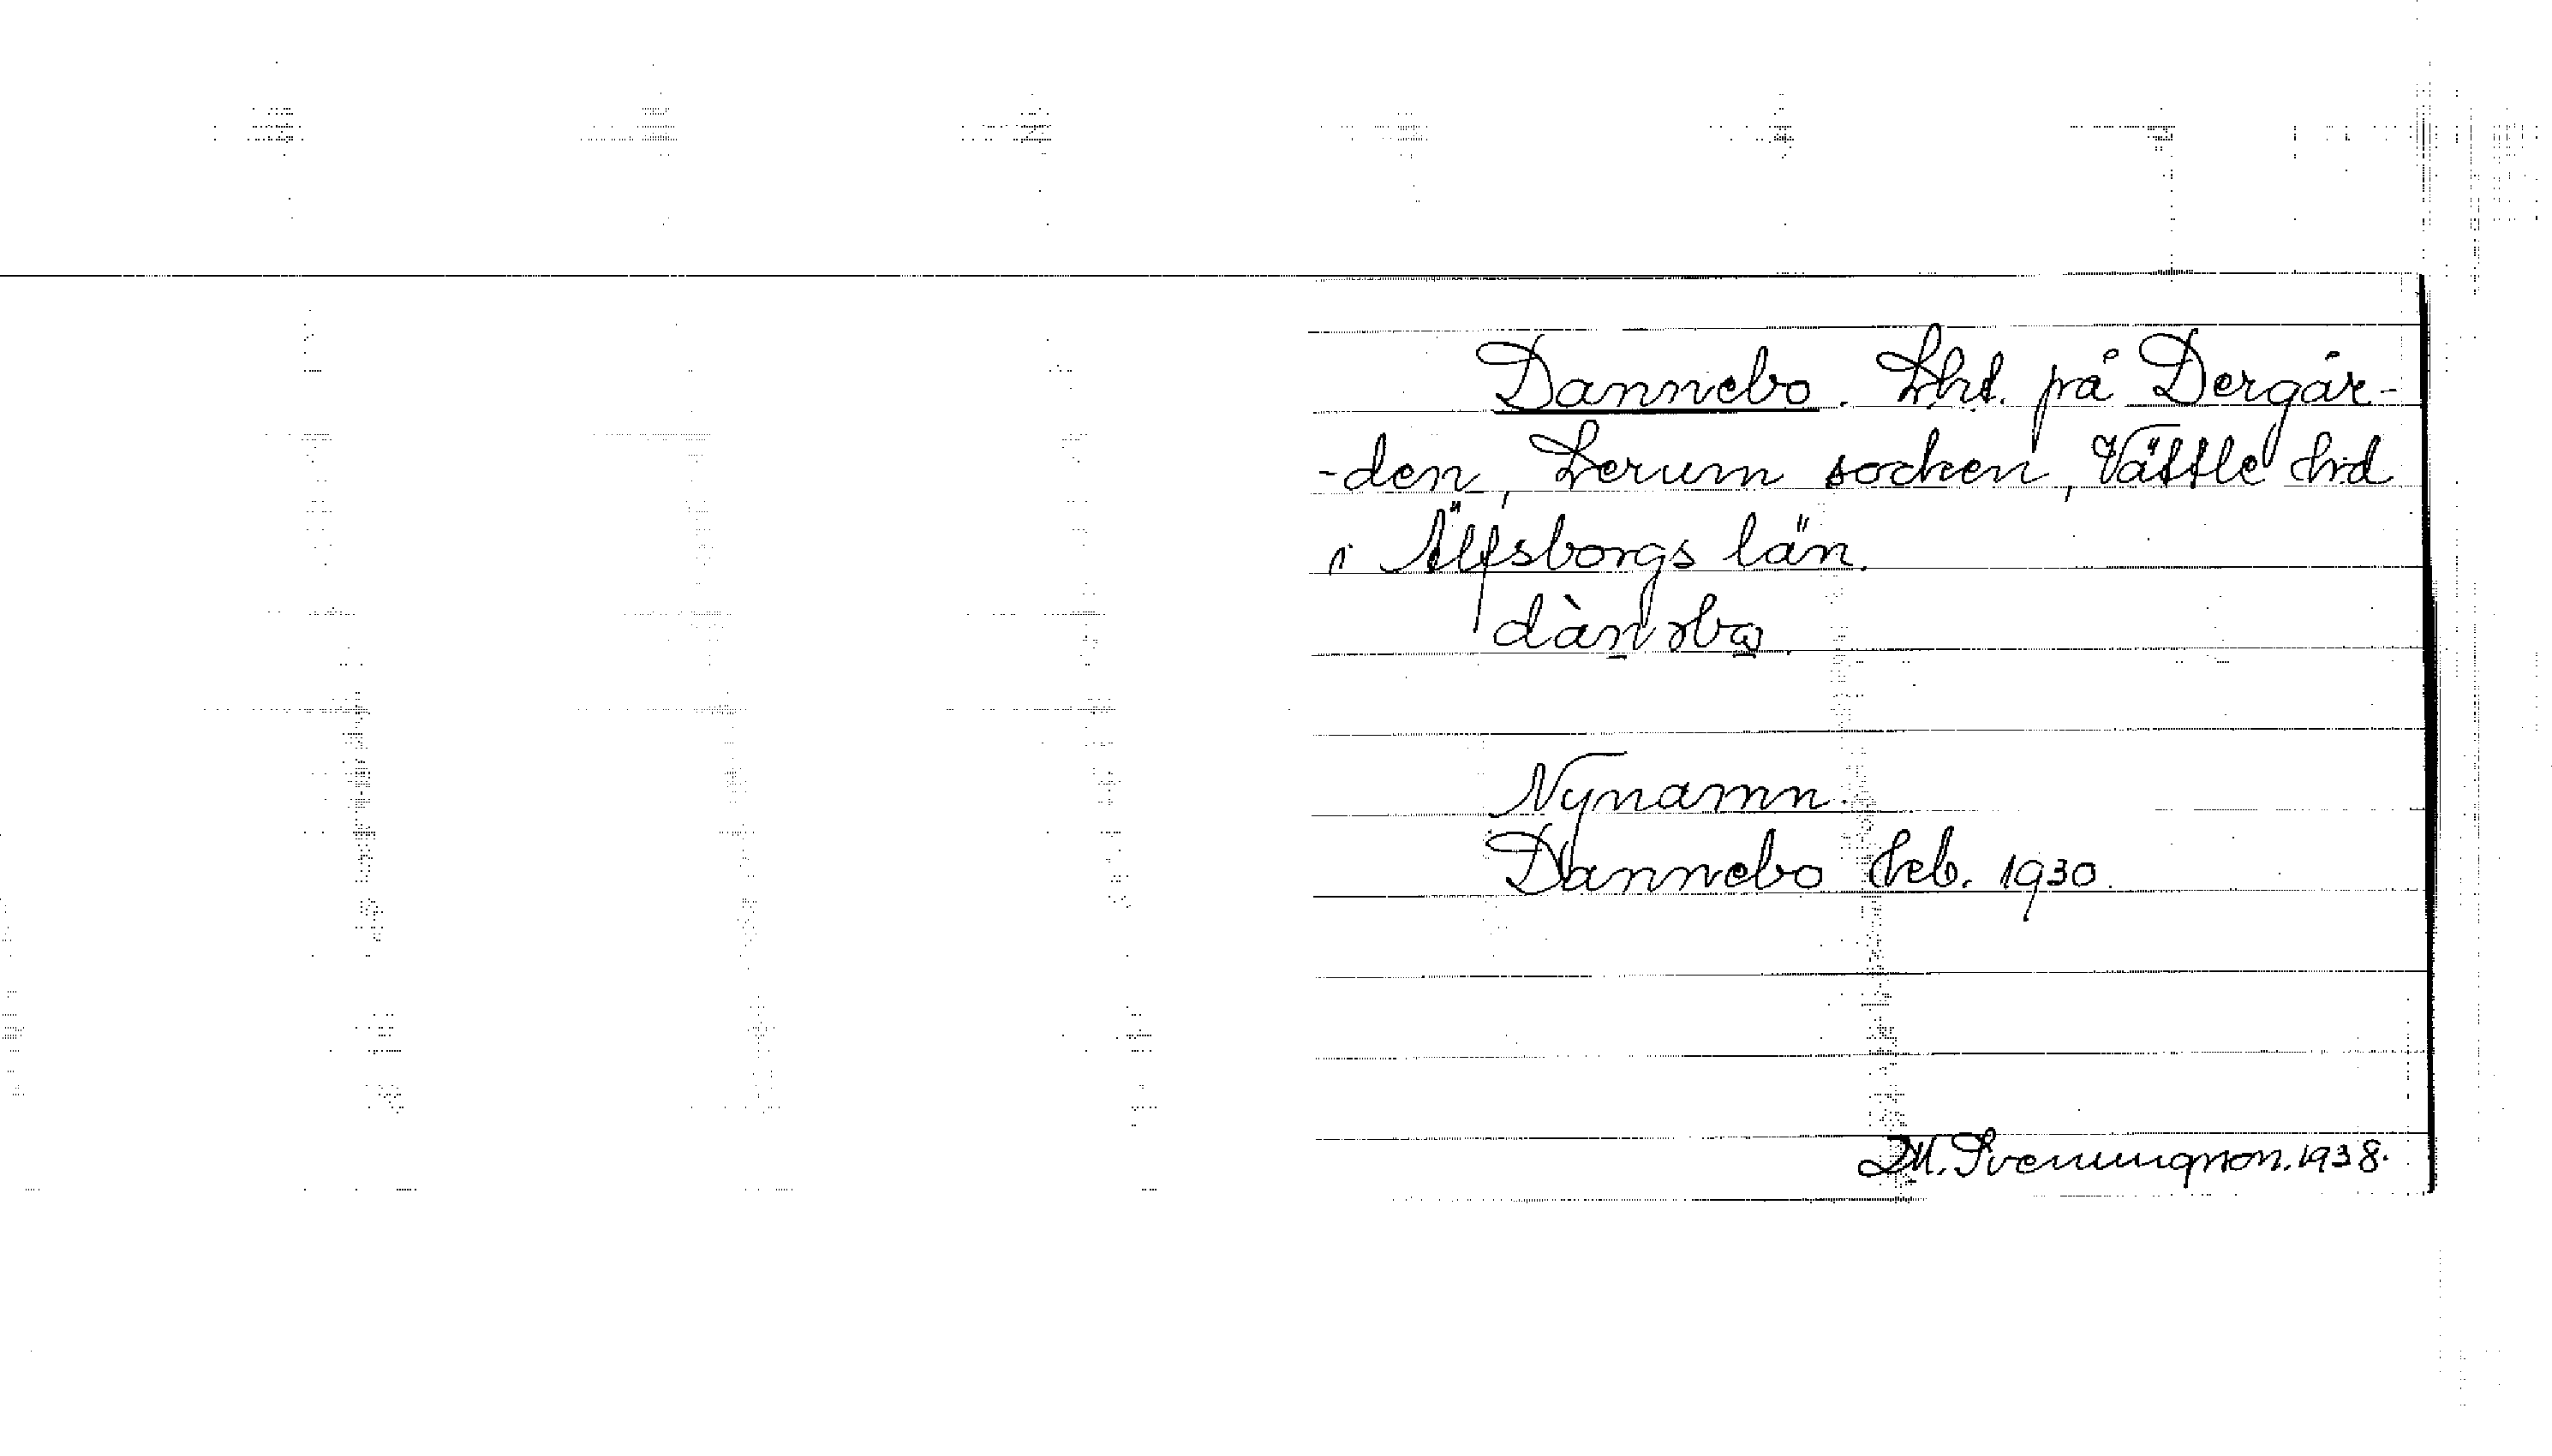 Dannebo. Lht. på Dergår-
-den, Lerum socken, Vättle hd
i Älfsborgs län.
dànəbo̱
Nynamn.
Dannebo Heb. 1930.
Sveningson. 1938.